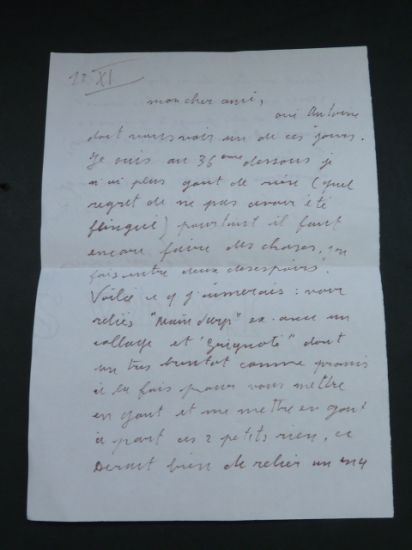 12 XI
mon cher ami,
oui Antoine
doit vous voir un de ces jours.
Je suis au 35ème dessous je
n'ai plus gout de rien (quel
regret de ne pas avoir été
flingué) pourtant il faut
encore faire des choses,
fais entre deux desespoirs.
Voilà ce q j'aimerais : vous
reliés "Main d'
" ex. avec un
collage et "Guignote" dont
un tres bientot comme promis
à la fois pour vous mettre
en gout et me mettre en gout
à part ces 2 petits rien, ce
serait bien de relier un